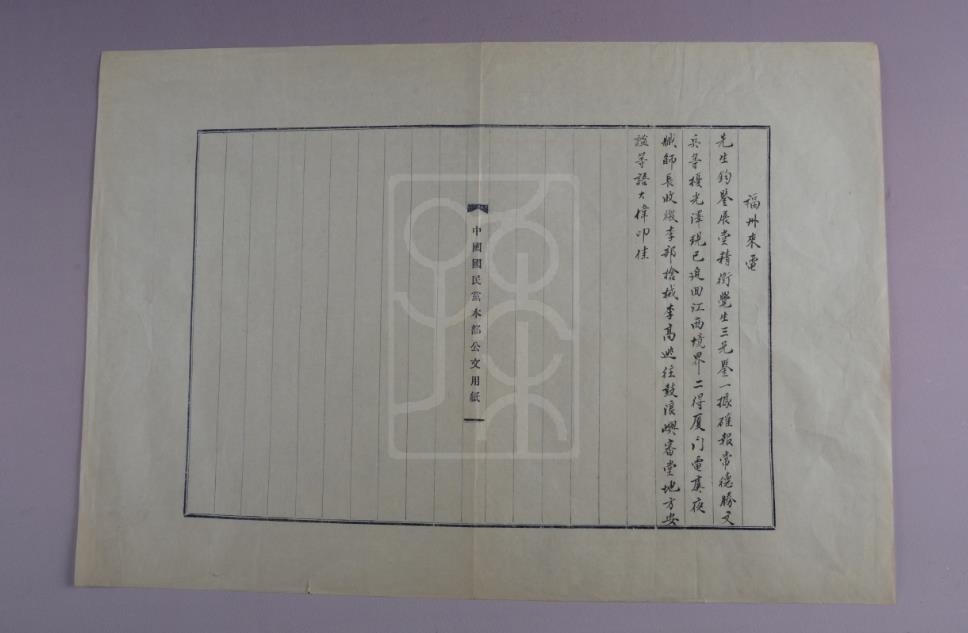 福州來電
先生鈞鑒展堂精衛覺生三兄鑒一據確報常德勝又
兵等擾光澤現已返回江西境界二得厦门電真夜
臧師長收繳李部槍械李高逃往鼓浪嶼審堂地方安
謐等語大偉叩佳
中國國民黨本部公文用紙